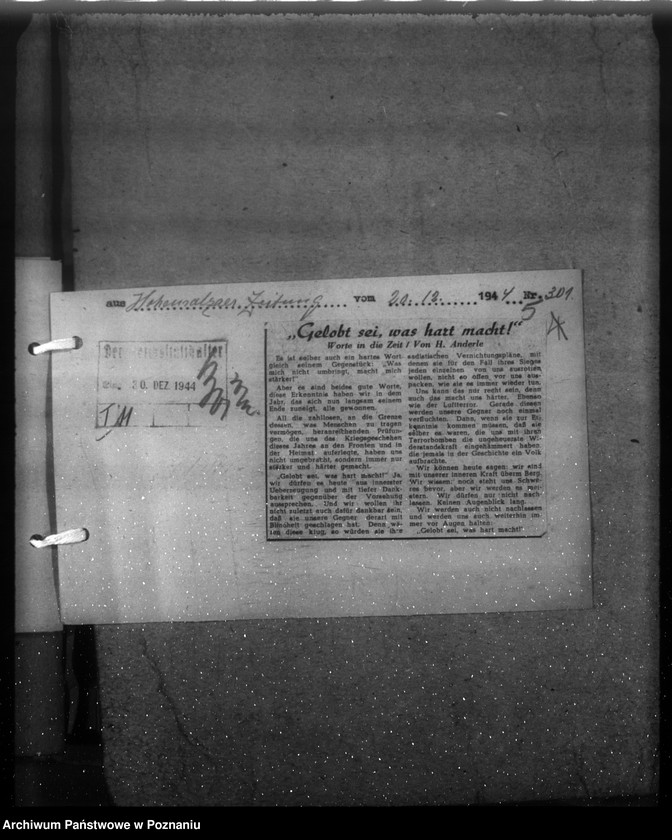 aus Hohensalzaer Zeitung vom 20.12. 1944 Nr. 301
5
Der Reichsstatthalter
30. DEZ 1944
I/11
„Gelobt sei, was hart macht!“
Worte in die Zeit / Von H. Anderle
Es ist selber auch ein hartes Wort
gleich seinem Gegenstück: „Was
mich nicht umbringt, macht mich
stärker!“
Aber es sind beides gute Worte,
diese Erkenntnis haben wir in dem
Jahr, das sich nun langsam seinem
Ende zuneigt, alle gewonnen.
All die zahllosen, an die Grenze
dessen, was Menschen zu tragen
vermögen, heranreichenden Prüfun-
gen, die uns das Kriegsgeschehen
dieses Jahres an den Fronten und in
der Heimat auferlegte, haben uns
nicht umgebracht, sondern immer nur
stärker und härter gemacht.
„Gelobt sei, was hart macht!“ Ja,
wir dürfen es heute aus innerster
Ueberzeugung und mit tiefer Dank-
barkeit gegenüber der Vorsehung
aussprechen. Und wir wollen ihr
nicht zuletzt auch dafür dankbar sein,
daß sie unsere Gegner derart mit
Blindheit geschlagen hat. Denn wä-
ren diese klug, so würden sie ihre
sadistischen Vernichtungspläne, mit
denen sie für den Fall ihres Sieges
jeden einzelnen von uns ausrotten
wollen, nicht so offen vor uns aus-
packen, wie sie es immer wieder tun.
Uns kann das nur recht sein, denn
auch das macht uns härter. Ebenso
wie der Luftterror. Gerade diesen
werden unsere Gegner noch einmal
verfluchten. Dann, wenn sie zur Er-
kenntnis kommen müssen, daß sie
selber es waren, die uns mit ihren
Terrorbomben die ungeheuerste Wi-
derstandskraft eingehämmert haben,
die jemals in der Geschichte ein Volk
aufbrachte.
Wir können heute sagen: wir sind
mit unserer inneren Kraft überm Berg.
Wir wissen: noch steht uns Schwe-
res bevor, aber wir werden es mei-
stern. Wir dürfen nur nicht nach-
lassen. Keinen Augenblick lang.
Wir werden auch nicht nachlassen
und werden uns auch weiterhin im-
mer vor Augen halten:
„Gelobt sei, was hart macht!“
Archiwum Państwowe w Poznaniu